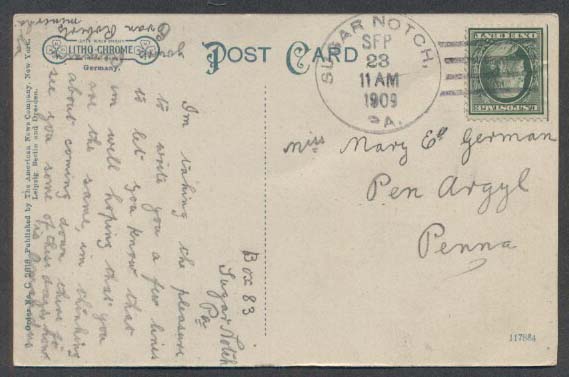 POST CARD
LITHO-CHROME
Germany.
Series No. C. 2018 Published by The American News Company, New York,
Leipzig, Berlin and Dresden.
SUGAR NOTCH,
SEP
23
11 AM
1909
PA.
U.S.POSTAGE
ONE CENT
Miss Mary E. German
Pen Argyl
Penna
Box 83
Sugar Notch
Pa
Im taking the pleasure
to write you a few lines
to let you know that
im well hoping that you
are the same, im thinking
about coming down there to
see you some of these days, how
is
Evan Roberts
117884